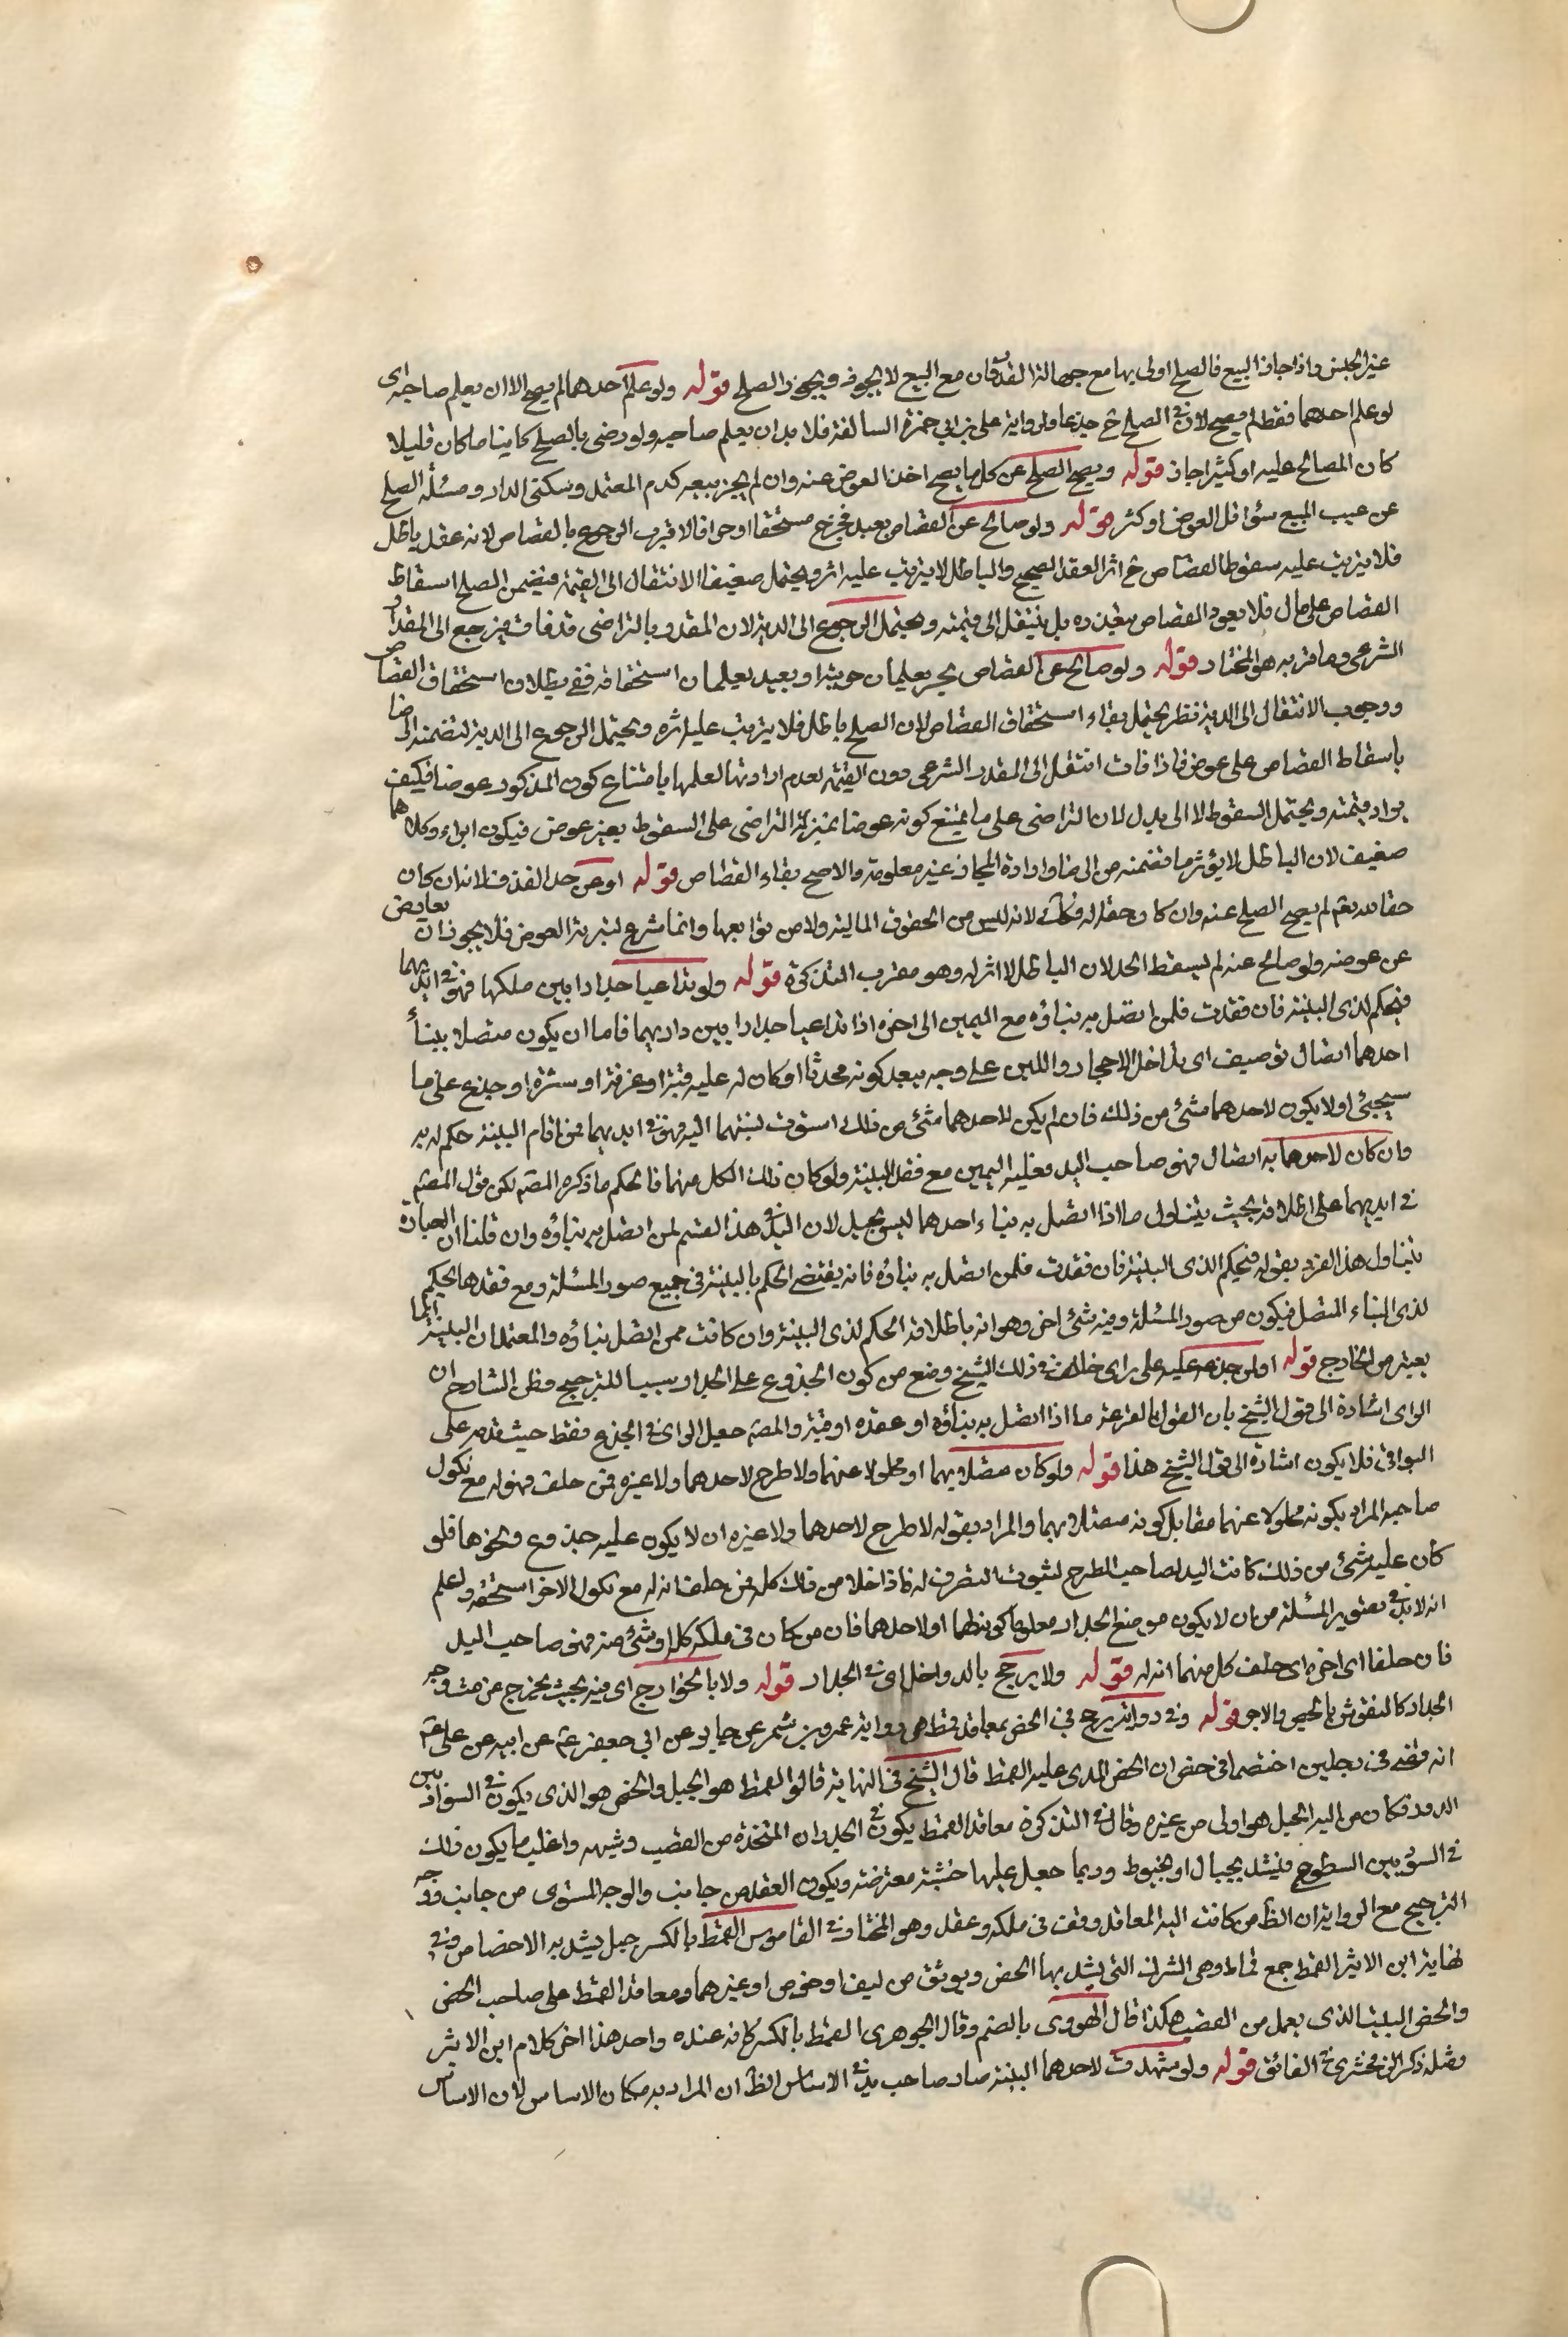 غير الجنس واذا جاز البيع فالصلح اولى بها مع جهالة القدر فان مع البيع لا يجوز ويجوز الصلح قوله ولو علم احدهما لم يصح الا ان يعلم صاحبه اى
لو علم احدهما فقط لم يصح لان فى الصلح ح خدعا ولرواية على بن ابى حمزة السالفة فلا بد ان يعلم صاحبه ولو رضى بالصلح كاينا ما كان قليلا
كان المصالح عليه او كثيرا جاز قوله ويصح الصلح عن كل ما يصح اخذ العوض عنه وان لم يجز بيعه كدم المعتمد وسكنى الدار ومسئلة الصلح
عن عيب المبيع سؤا قل العوض او كثر قوله ولو صالح عن القصاص بعبد فخرج مستحقا او حرا فالاقرب الرجوع بالقصاص لانه عقد باطل
فلا يترتب عليه سقوط القصاص ح اثر العقد الصحيح والباطل لا يترتب عليه اثر ويحتمل ضعيفا الانتقال الى القيمة فيضمن الصلح اسقاط
القصاص على مال فلا يعود القصاص بتعذره بل ينتقل الى قيمته ويحتمل الرجوع الى الدية لان المقدر بالتراضى قد فات فيرجع الى المقدر
الشرعى وما قربه هو المختار قوله ولو صالح عن القصاص بحر يعلمان حريته او بعبد يعلمان استحقاقه ففى بطلان استحقاق القصاص
ووجوب الانتقال الى الدية نظر يحتمل بقاء استحقاق القصاص لان الصلح باطل فلا يترتب عليه اثره ويحتمل الرجوع الى الدية لتضمنه الرضا
باسقاط القصاص على عوض فاذا فات انتقل الى المقدر الشرعى دون القيمة لعدم ارادتها لعلمها بامتناع كون المذكور عوضا فكيف
يراد قيمته ويحتمل السقوط لا الى بدل لان التراضى على ما يمتنع كونه عوضا بمنزلة التراضى على السقوط بغير عوض فيكون ابراء وكلاهما
ضعيف لان الباطل لا يؤثر ما تضمنه من الرضا وارادة المجاز غير معلومة والاصح بقاء القصاص قوله او عن حد القذف فلانه ان كان
حقا لله تعم لم يصح الصلح عنه وان كان حقا له فكذلك لانه ليس من الحقوق المالية ولا من توابعها وانما شرع لتبرية العرض فلا يجوز ان يعاوض
عن عوضه ولو صالح عنه لم يسقط الحد لان الباطل لا اثر له وهو مقرب التذكرة قوله ولو تداعيا جدارا بين ملكها فهو فى ايديهما
فيحكم لذى البينة فان فقدت فلمن اتصل به بناؤه مع اليمين الى اخره اذا تداعيا جدارا بين داريهما فاما ان يكون متصلا ببنأ
احدهما اتصال توصيف اى بداخل الاحجار واللبن على وجه يبعد كونه محدثا او كان له عليه قبة او غرفة او سترة او جذع على ما
سيجئ او لا يكون لاحدهما شئ من ذلك فان لم يكن لاحدهما شئ من ذلك استوت نسبتهما اليه فهو فى ايديهما فمن اقام البينة حكم له به
وان كان لاحدهما به اتصال فهو صاحب اليد فعليه اليمين مع فقد البينة ولو كان ذلك لكل منهما فالحكم ما ذكره المصم لكن قول المصم
فى ايديهما على اطلاقه بحيث يتناول ما اذا اتصل به بناء احدهما ليس بجيد لان اليد فى هذا القسم لمن اتصل به بناؤه وان قلنا ان العبارة
تتناول هذا الفرد بقوله فيحكم لذى البينة فان فقدت فلمن اتصل به بناؤه فانه يقتضى الحكم بالبينة فى جميع صور المسئلة ومع فقدها يحكم
لذى البناء المتصل فيكون من صور المسئلة وفيه شئ اخر وهو انه باطلاقه الحكم لذى البينة وان كانت ممن اتصل بناؤه والمعتمد ان البينة انما
يعتبر من الخارج قوله او لمن جذعه عليه على راى خالف فى ذلك الشيخ ومنع من كون الجذوع على الجدار سببا للترجيح وظن الشارح ان
الراى اشارة الى قول الشيخ بان القول بالقرعة ما اذا اتصل به بناؤه او عقده او قبة والمصم جعل الراى فى الجذع فقط حيث قدمه على
البواقى فلا يكون اشارة الى قول الشيخ هذا قوله ولو كان متصلا بهما او محلولا عنهما ولا طرح لاحدهما ولا غيره فمن حلف فهو له مع نكول
صاحبه المراد بكونه محلولا عنهما مقابل كونه متصلا بهما والمراد بقوله لا طرح لاحدهما ولا غيره ان لا يكون عليه جذوع ونحوها فلو
كان عليه شئ من ذلك كانت اليد لصاحب الطرح لثبوت التصرف له فاذا خلا من ذلك كله فمن حلف انه له مع نكول الاخر استحقه ولعلم
انه لا بد فى تصوير المسئلة من ان لا يكون موضع الجدار معلوما كونه لهما او لاحدهما فان من كان فى ملكه كله او شئ منه فهو صاحب اليد
فان حلفا اى اخره اى حلف كل منهما انه له قوله ولا يرجح بالدواخل اى فى الجدار قوله ولا بالخوارج اى فيه بحيث يخرج عن سمت وجه
الجدار كالنقوش بالجص والاجر قوله وفى رواية يرجح فى الخص بمعاقد قمط هى رواية عمرو بن شمر عن جابر عن ابى جعفر عم عن ابيه عن على عم
انه قضى فى رجلين اختصما فى خص ان الخص للذى عليه القمط قال الشيخ فى النهاية قالوا القمط هو الحبل والخص هو الذى يكون فى السواد بين
الدور فكان من اليه الحبل هو اولى من غيره وقال فى التذكرة معاقد القمط يكون فى الجدران المتخذة من القصب وشبهه واغلب ما يكون ذلك
فى السور بين السطوح فيشد بحبال او بخيوط وربما جعل عليها خشبة معترضة ويكون العقد من جانب والوجه المستوى من جانب ووجه
الترجيح مع الرواية ان الظ من كانت اليه المعاقد وقفت فى ملكه وعقد وهو المختار وفى القاموس القمط بالكسر حبل يشد به الاخصاص وفى
نهاية ابن الاثير القمط جمع قماط وهى الشرط التى يشد بها الخص ويوثق من ليف او خوص او غيرهما ومعاقد القمط على صاحب الخص
والخص البيت الذى يعمل من القصب هكذا قال الهروى بالضم وقال الجوهرى القمط بالكسر كانه عنده واحد هذا اخر كلام ابن الاثير
ومثله ذكر الزمخشرى فى الفائق قوله ولو شهدت لاحدهما البينة صار صاحب يد فى الاساس الظ ان المراد به مكان الاساس لان الاساس